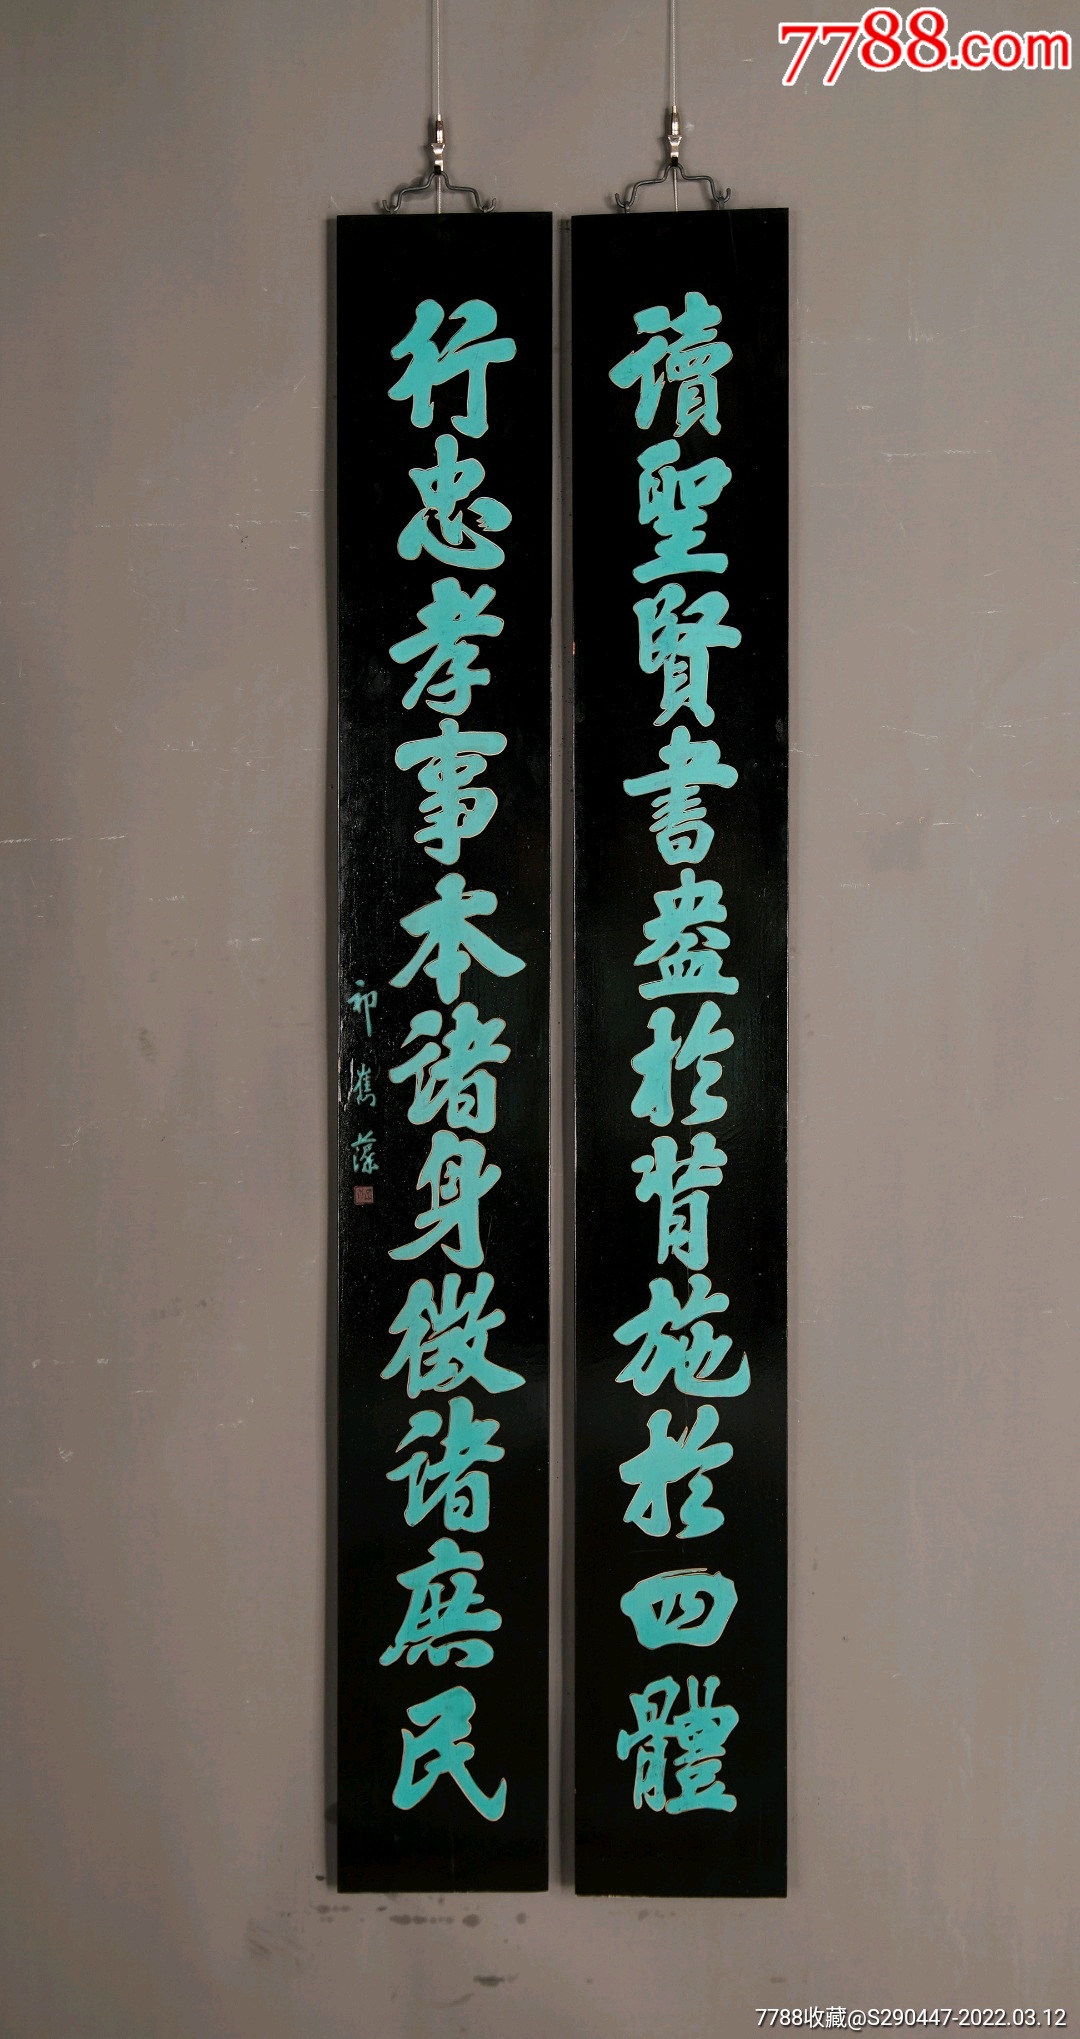 7788.com
讀聖賢書盎於背施於四體
行忠孝事本諸身徵諸庶民
祁寯藻
7788收藏@S290447-2022.03.12